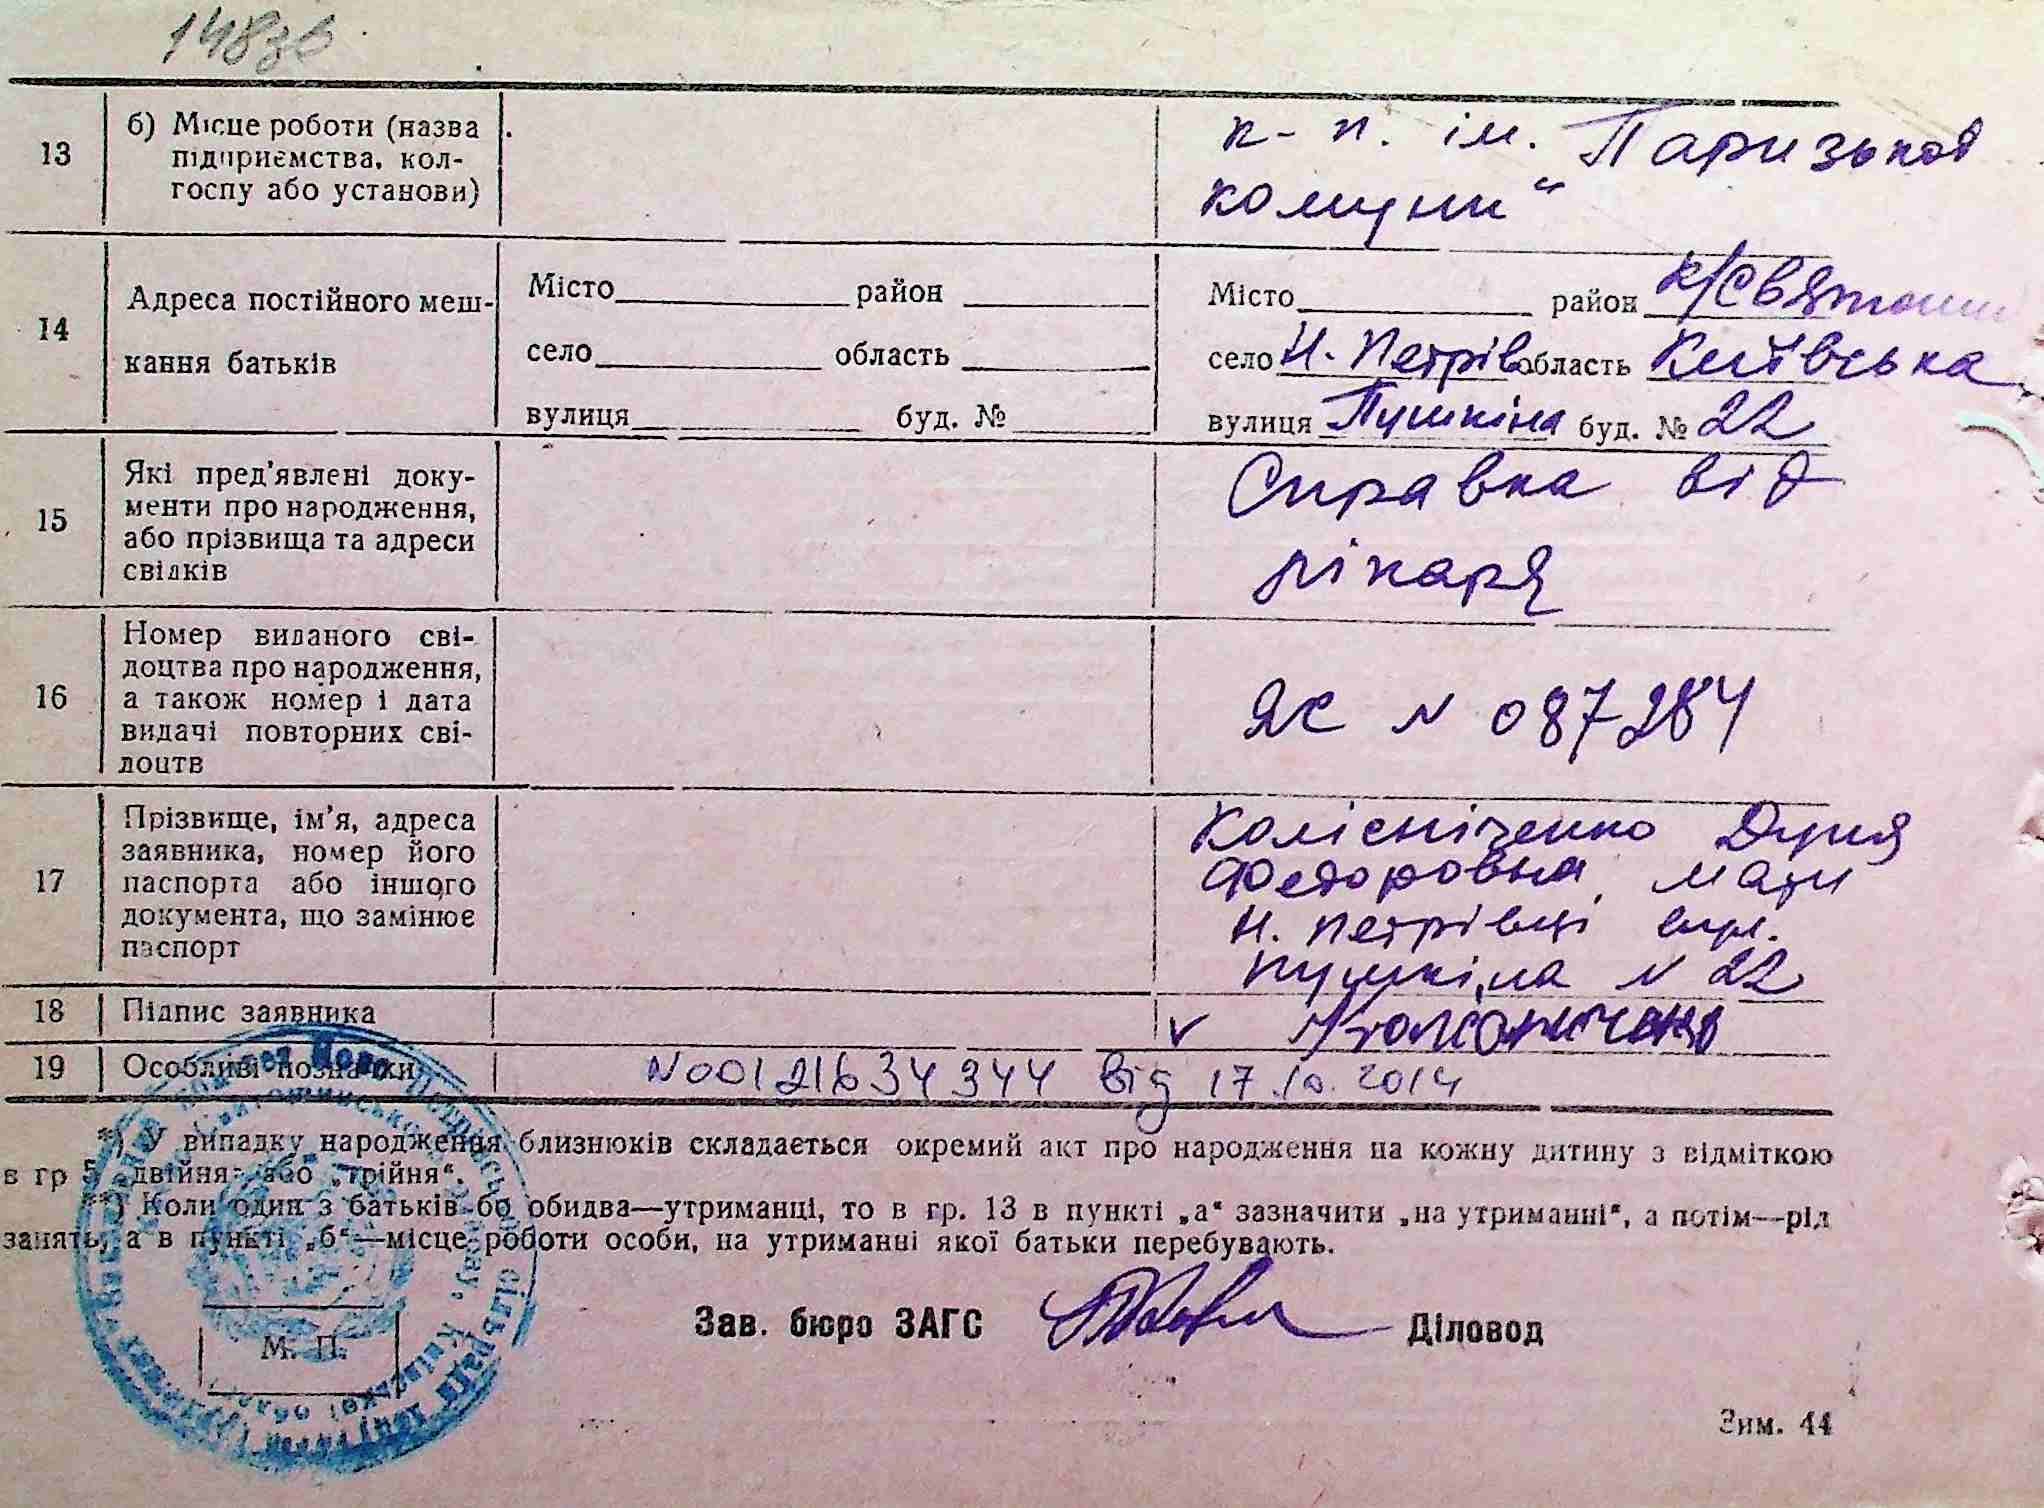 148зв
13
б) Місце роботи (назва
підприємства, кол-
госпу або установи)
к-п. ім. Паризької
комуни"
14
Адреса постійного меш-
кання батьків
Місто район
село область
вулиця буд. №
Місто район К/Святошин
село Н. Петрів область Київська
вулиця Пушкіна буд. № 22
15
Які пред'явлені доку-
менти про народження,
або прізвища та адреси
свідків
Справка від
лікаря
16
Номер виданого сві-
доцтва про народження,
а також номер і дата
видачі повторних сві-
доцтв
ЯС N 087284
17
Прізвище, ім'я, адреса
заявника, номер його
паспорта або іншого
документа, що замінює
паспорт
Колісніченко Дуня
Федоровна, мати
Н. Петрівці вул.
Пушкіна N 22
18 Підпис заявника
19 Особливі позначки
N00121634344 від 17.10.2014
*) У випадку народження близнюків складається окремий акт про народження на кожну дитину з відміткою
в гр 5 „двійня“ або „трійня“.
**) Коли один з батьків бо обидва—утриманці, то в гр. 13 в пункті „а“ зазначити „на утриманні“, а потім—рід
занять, а в пункті „б“—місце роботи особи, на утриманні якої батьки перебувають.
Зав. бюро ЗАГС Діловод
М. П.
Зим. 44